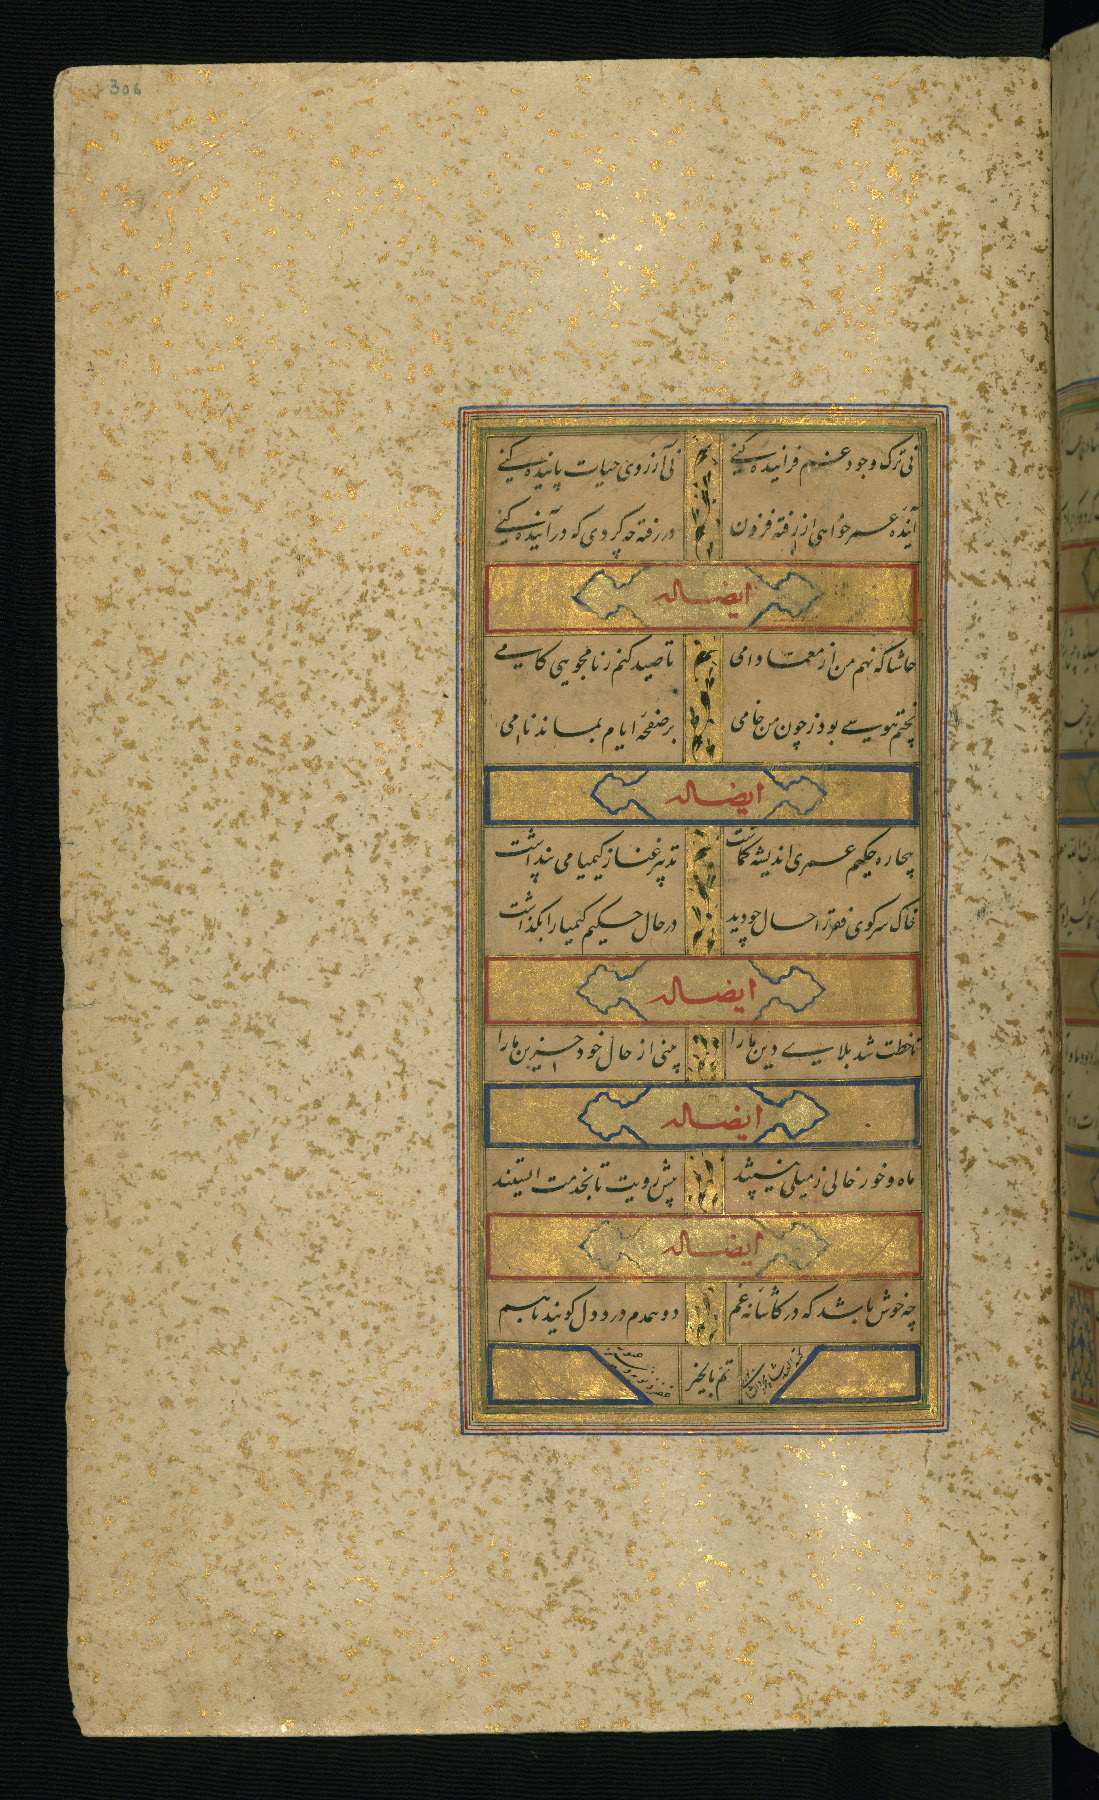 306
نی ترک وجود غم فزاینده کنی نی آرزوی حیات پاینده کنی
آینده عمر خواهی از رفته فزون در رفته چه کردی که در آینده کنی
ایضاله
حاشا که نهم من از معما دامی تا صید کنم ز نامجویی کامی
بود ز چون من خامی بر صفحه ایام بماند نامی
ایضاله
بیچاره حکیم عمری اندیشه گماشت تدبیر غنا ز کیمیا می پنداشت
خاک سر کوی فقر را حال چو دید در حال حکیم کیمیا را بگذاشت
ایضاله
تا خطت شد بلای دین ما را بینی از حال خود حزین ما را
ایضاله
ماه و خور خالی ز میلی نیستند پیش رویت تا بخدمت ایستند
ایضاله
چه خوش باشد که در کاشانه غم دو همدم درد دل گویند با هم
تم بالخیر